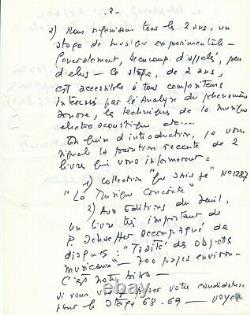 - 2 -
2) Nous organisons tous les 2 ans, un
stage de musique expérimentale -
Généralement, beaucoup d'appelés, peu
d'élus - Le stage, de 2 ans,
est accessible à tous compositeurs
intéressés par l'Analyse du phénomène
sonore, les techniques de la musique
électroacoustique etc...
En guise d'introduction, je vous
signale la parution récente de 2
livres qui vous informeront -
1) Collection "Que Sais-je" N° 1287
"La Musique Concrète"
2) Aux Editions du Seuil,
un livre très important de
P. Schaeffer accompagné de
disques - "Traité des objets
musicaux" - 700 pages environ -
C'est notre bible -
Si vous posez votre candidature
pour le Stage 68-69 - voyez